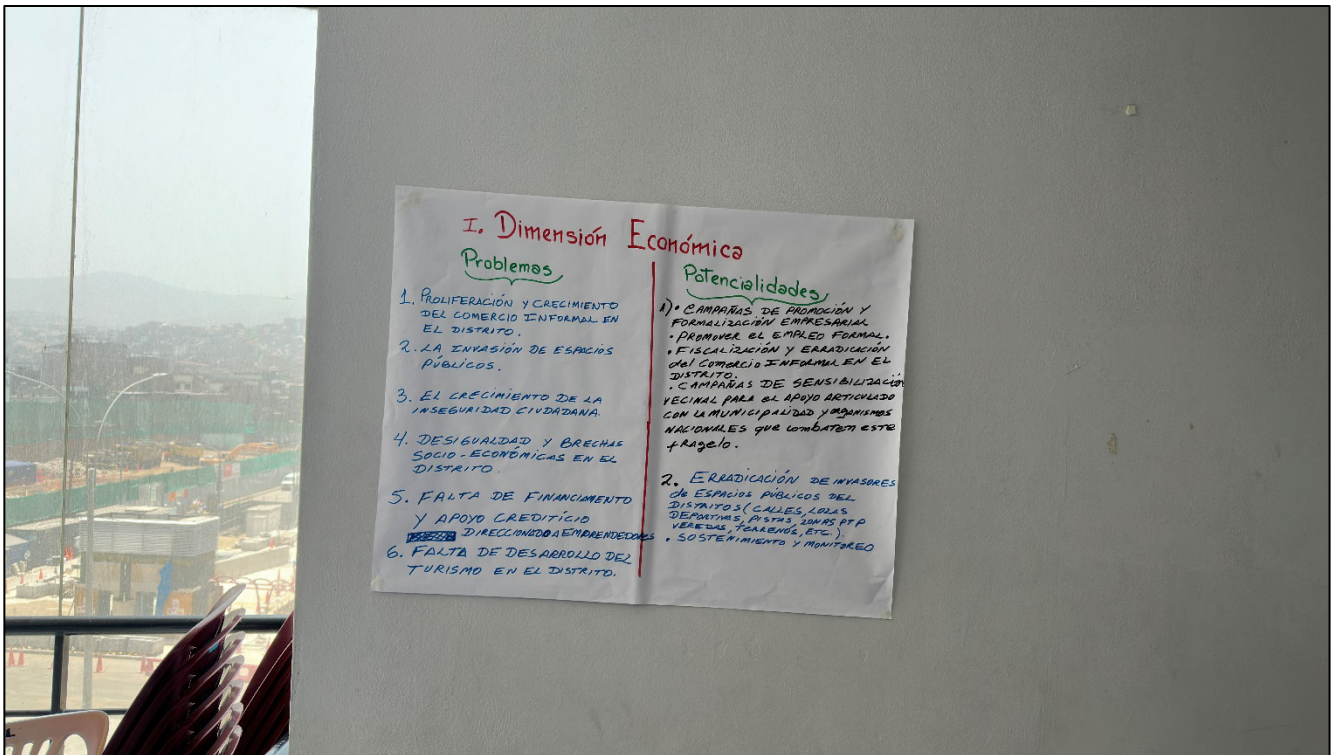 I. Dimensión Económica
Problemas
1. PROLIFERACIÓN Y CRECIMIENTO
DEL COMERCIO INFORMAL EN
EL DISTRITO.
2. LA INVASIÓN DE ESPACIOS
PÚBLICOS.
3. EL CRECIMIENTO DE LA
INSEGURIDAD CIUDADANA.
4. DESIGUALDAD Y BRECHAS
SOCIO-ECONÓMICAS EN EL
DISTRITO.
5. FALTA DE FINANCIAMENTO
Y APOYO CREDITÍCIO
DIRECCIONADO A EMPRENDEDORES
6. FALTA DE DESARROLLO DEL
TURISMO EN EL DISTRITO.
Potencialidades
1) • CAMPAÑAS DE PROMOCIÓN Y
FORMALIZACIÓN EMPRESARIAL
• PROMOVER EL EMPLEO FORMAL.
• FISCALIZACIÓN Y ERRADICACIÓN
del COMERCIO INFORMAL EN EL
DISTRITO.
• CAMPAÑAS DE SENSIBILIZACIÓN
VECINAL PARA EL APOYO ARTICULADO
CON LA MUNICIPALIDAD y organismos
NACIONALES que combaten este
fragelo.
2. ERRADICACIÓN DE INVASORES
de ESPACIOS PÚBLICOS DEL
DISTRITOS (CALLES, LOZAS
DEPORTIVAS, PISTAS, ZONAS PTP
VEREDAS, TERRENOS, ETC.).
• SOSTENIMIENTO Y MONITOREO